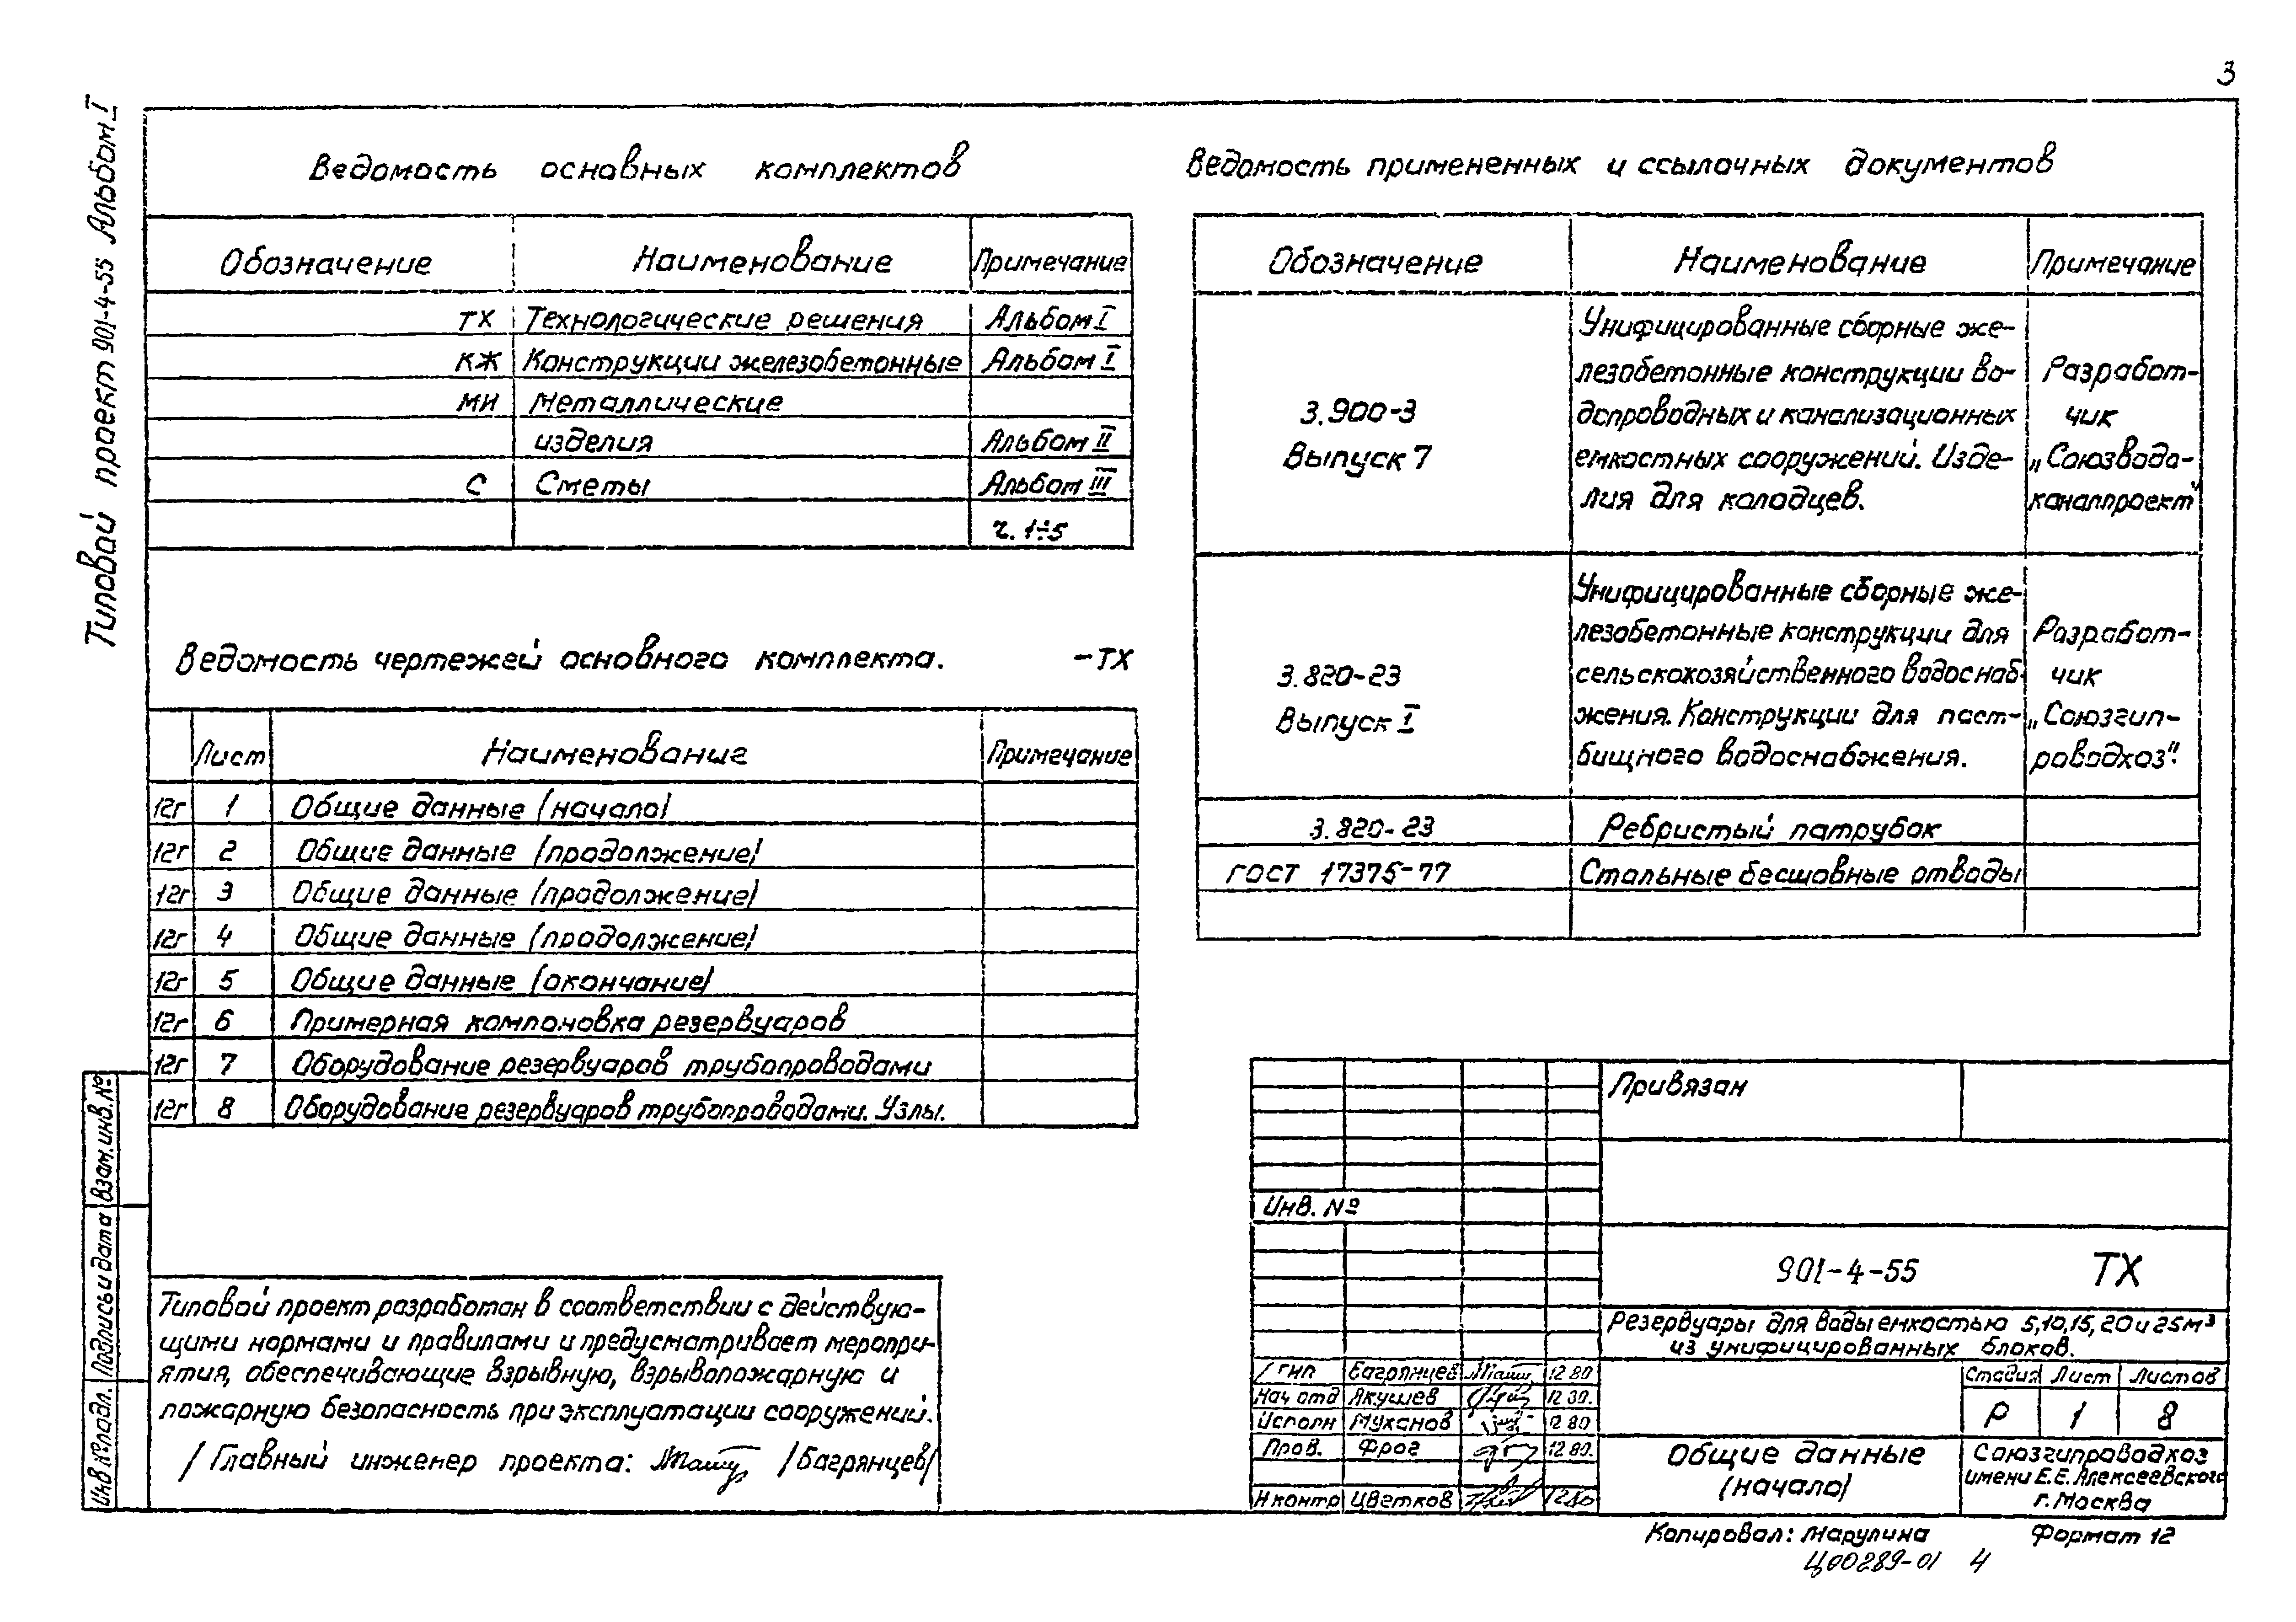 3
Типовой проект 901-4-55 Альбом I
Ведомость основных комплектов
Обозначение Наименование Примечание
ТХ Технологические решения Альбом I
КЖ Конструкции железобетонные Альбом I
МИ Металлические
изделия Альбом II
С Сметы Альбом III
ч. 1÷5
Ведомость чертежей основного комплекта. -ТХ
Лист Наименование Примечание
12г 1 Общие данные (начало)
12г 2 Общие данные (продолжение)
12г 3 Общие данные (продолжение)
12г 4 Общие данные (продолжение)
12г 5 Общие данные (окончание)
12г 6 Примерная компоновка резервуаров
12г 7 Оборудование резервуаров трубопроводами
12г 8 Оборудование резервуаров трубопроводами. Узлы.
Ведомость примененных и ссылочных документов
Обозначение Наименование Примечание
3.900-3
Выпуск 7
Унифицированные сборные же-
лезобетонные конструкции во-
допроводных и канализационных
емкостных сооружений. Изде-
лия для колодцев.
Разработ-
чик
„Союзводо-
каналпроект"
3.820-23
Выпуск I
Унифицированные сборные же-
лезобетонные конструкции для
сельскохозяйственного водоснаб-
жения. Конструкции для паст-
бищного водоснабжения.
Разработ-
чик
„Союзгип-
роводхоз".
3.820-23 Ребристый патрубок
ГОСТ 17375-77 Стальные бесшовные отводы
Взам. инв. №
Подпись и дата
Инв № подл.
Типовой проект разработан в соответствии с действую-
щими нормами и правилами и предусматривает меропри-
ятия, обеспечивающие взрывную, взрывопожарную и
пожарную безопасность при эксплуатации сооружений.
/Главный инженер проекта: /Багрянцев/
Привязан
Инв. №
901-4-55 ТХ
Резервуары для воды емкостью 5,10,15,20 и 25м³
из унифицированных блоков.
ГИП Багрянцев 12 80
Нач отд Якушев 12 80.
Исполн Муханов 12 80
Пров. Фрог 12 80.
Н контр Цветков 12 80
Стадия Лист Листов
Р 1 8
Общие данные
(начало)
Союзгипроводхоз
имени Е.Е. Алексеевского
г. Москва
Копировал: Марулина Формат 12
Ц00289-01 4